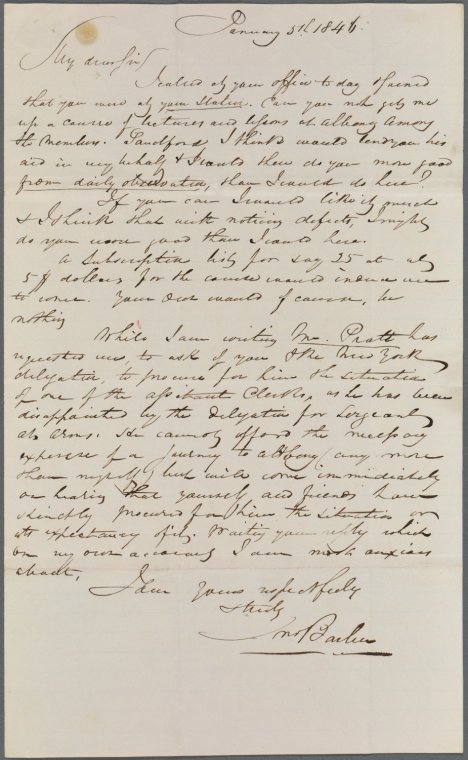 January 5th 1846.
My dear Sir
I called at your office to day & found
that you were at your Station. Can you not get me
up a course of lectures and lessons at Albany among
the members. Sandford, I think would lend you his
aid in my behalf & I could then do you more good
from daily observation, than I could do here?
If you can I would like it much
& I think that with noticing defects, I might
do you more good than I could here.
A Subscription list for say 25 at
5 $ dollars for the course would induce me
to come. Your own would of course, be
nothing
While I am writing Mr. Pratt has
requested me, to ask of you & the New York
delegation, to procure for him the situation
of one of the assistant Clerks, as he has been
disappointed by the delegation for Sergeant
at Arms. He cannot afford the necessary
expense of a journey to Albany (any more
than myself) but will come immediately
on hearing that yourself and friends have
procured for him the situation or
expectancy of it. Waiting your reply which
on my own account I am most anxious
about,
I am yours respectfully
truly
Jno Barber